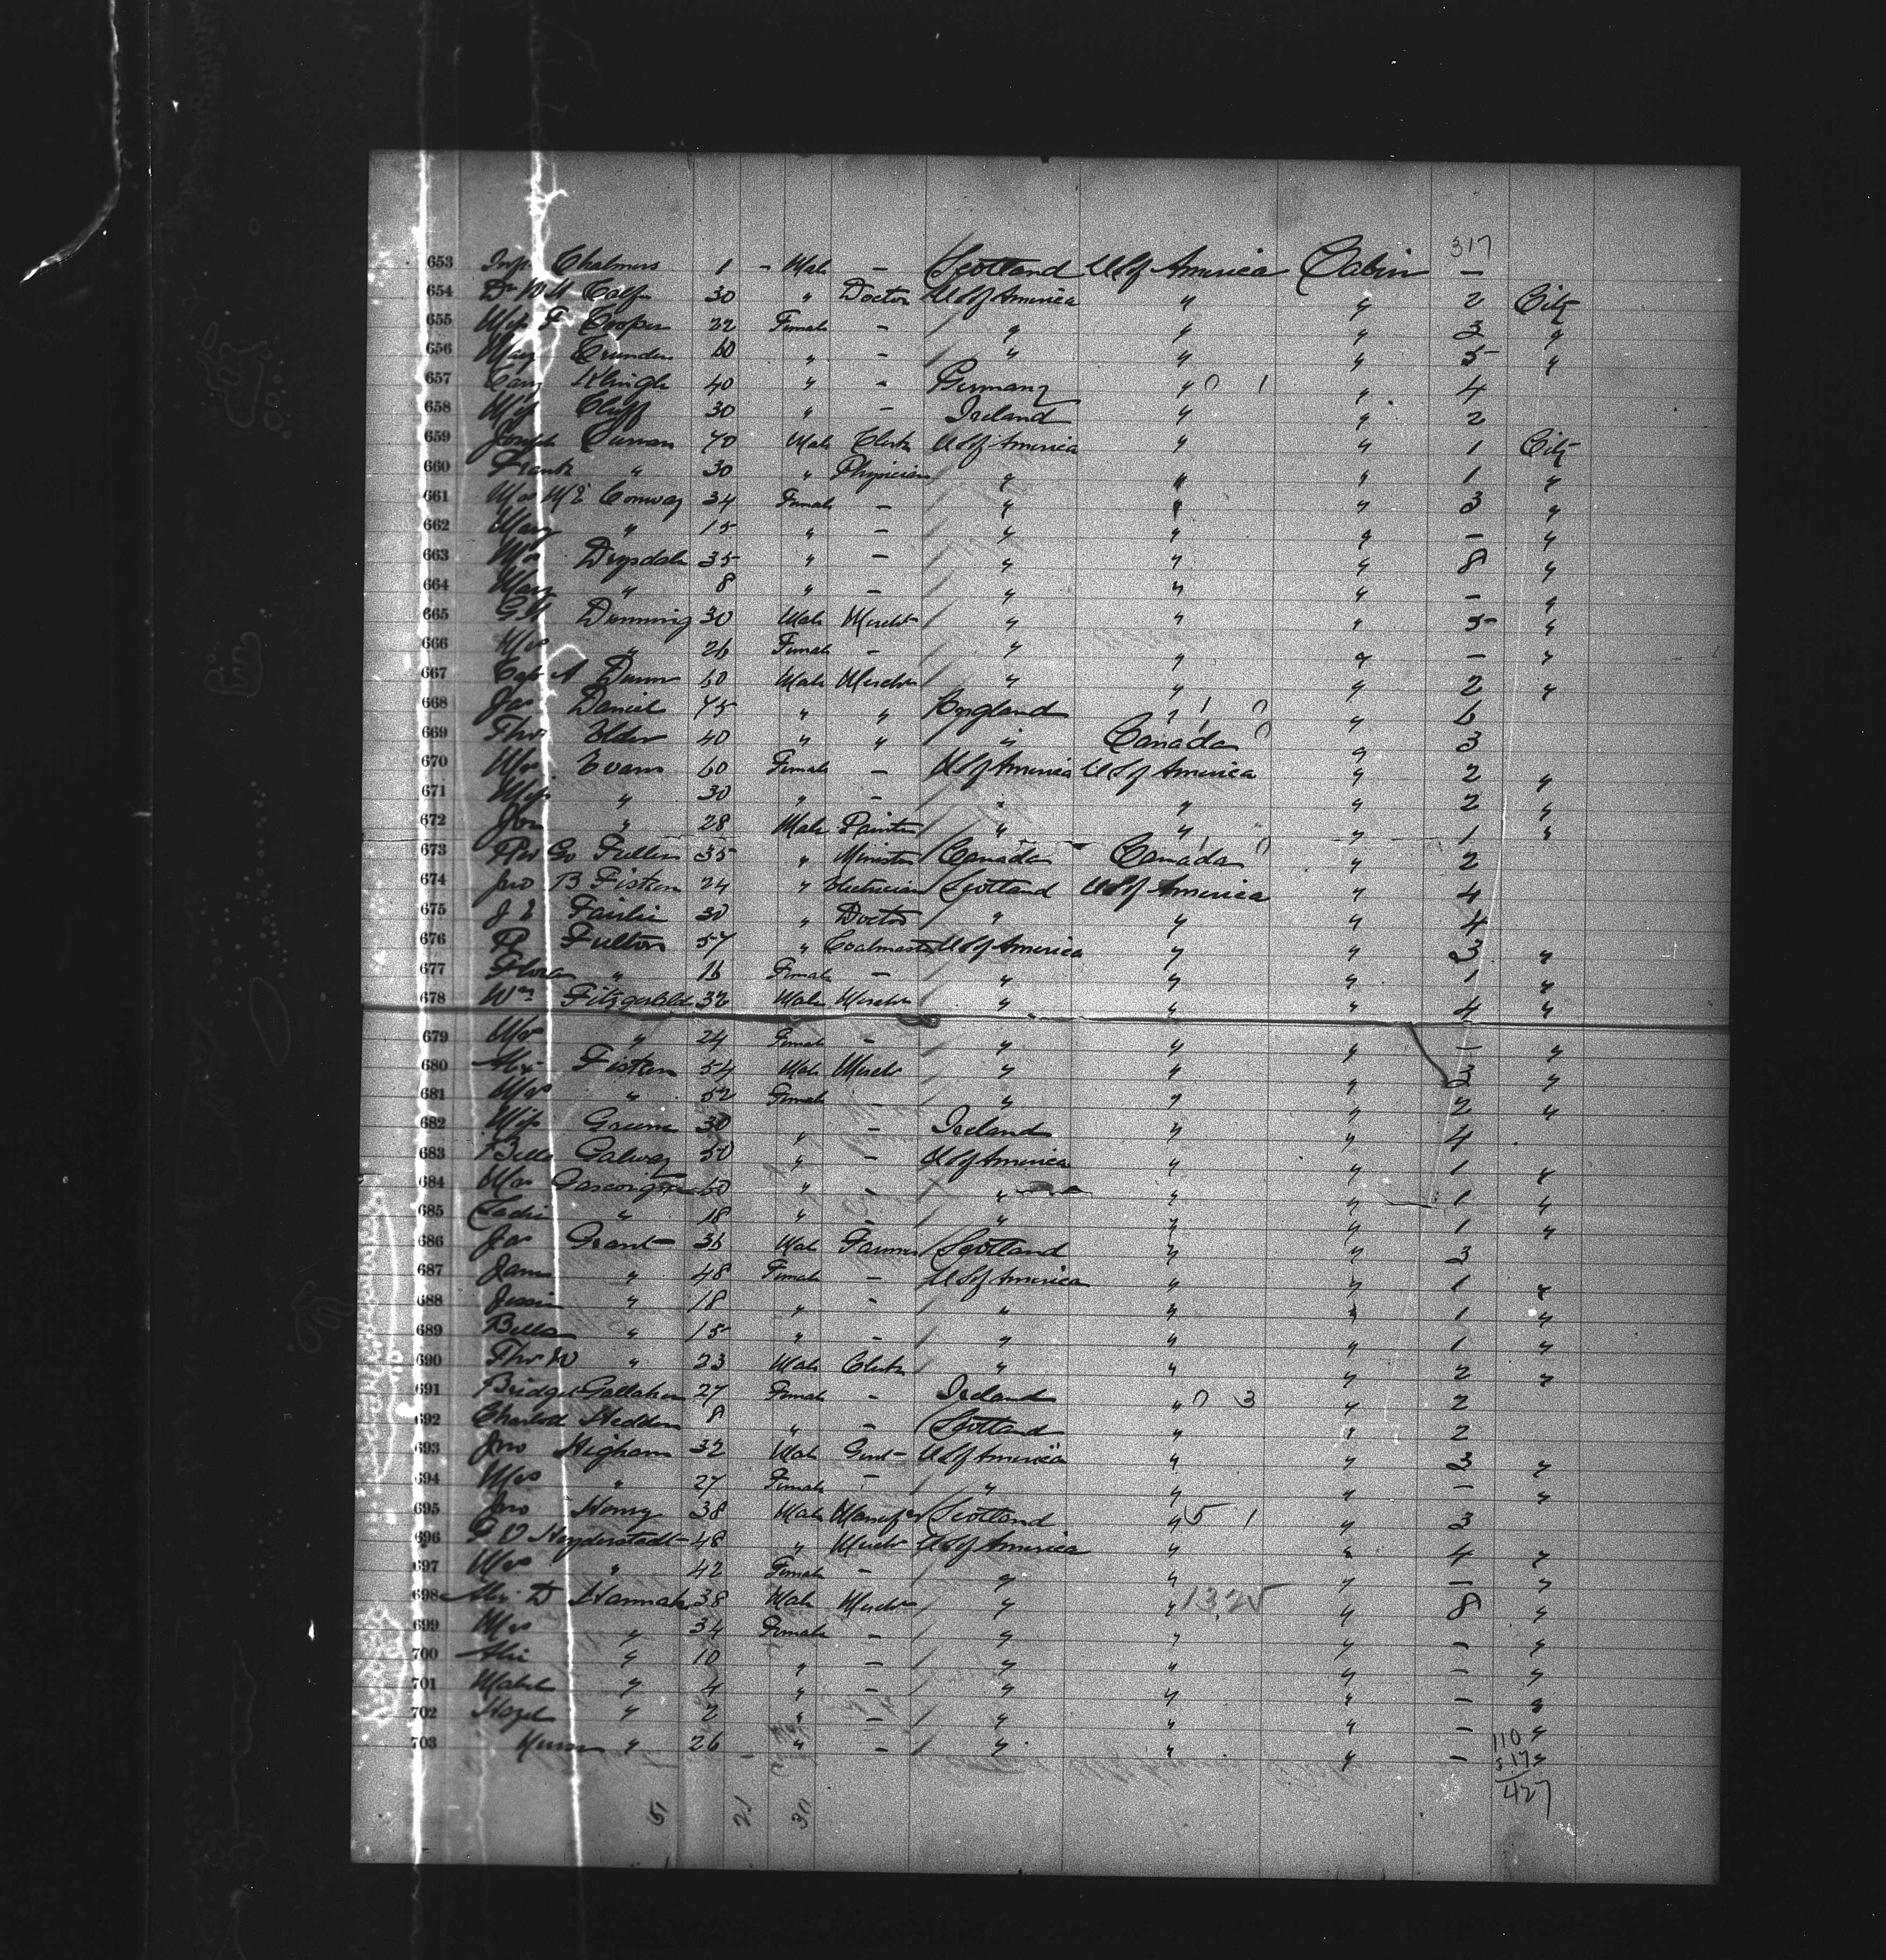 317
653 Inft Chalmers 1 - Male - Scotland US of America Cabin -
654 Dr W H Calf 30 " Doctor US of America " " 2 City
655 Miss F Cooper 22 Female - " " " 3 "
656 Mary 60 " - " " " 5 "
657 Klingle 40 " - Germany " 0 1 " 4
658 Miss Cluff 30 " - Ireland " " 2
659 Joseph Curran 70 Male Clerk US of America " " 1 City
660 Frank " 30 " Physician " " " 1 "
661 Mrs M E Conway 34 Female - " " " 3 "
662 Mary " 15 " - " " " - "
663 Mrs Drysdale 35 " - " " " 8 "
664 Mary " 8 " - " " " - "
665 G H Dunning 30 Male Mercht " " " 5 "
666 Mrs " 26 Female - " " " - "
667 Capt A Dunn 60 Male Mercht " " " 2 "
668 Jas Daniel 45 " " England " 1 0 " 6
669 Thos Elder 40 " " " Canada 1 0 " 3
670 Mrs Evans 60 Female - US of America US of America " 2 "
671 Miss " 30 " - " " " 2 "
672 Jno " 28 Male Painter " " " 1 "
673 Rev Go Fuller 35 " Minister Canada Canada 1 0 " 2
674 Jno B Fisken 24 " Electrician Scotland US of America " 4
675 J E Fairlie 30 " Doctor " " " 4
676 R Fulton 57 " Coalmaster US of America " " 3 "
677 Flora " 16 Female - " " " 1 "
678 Wm Fitzgerald 32 Male Mercht " " " 4 "
679 Mrs " 24 Female - " " " - "
680 Alex Fisken 54 Male Mercht " " " 3 "
681 Mrs " 52 Female - " " " 2 "
682 Miss Greene 30 " - Ireland " " 4
683 Bella Galway 50 " - US of America " " 1 "
684 Mrs Gascoigne 60 " - " " " 1 "
685 Sadie " 18 " - " " " 1 "
686 Jas Grant 36 Male Farmer Scotland " " 3
687 Janes " 48 Female - US of America " " 1 "
688 Jessie " 18 " - " " " 1 "
689 Bella " 15 " - " " " 1 "
690 Thos W " 23 Male Clerk " " " 2 "
691 Bridget Gallaher 27 Female - Ireland " 0 3 " 2
692 Charlott Hedden 8 " - Scotland " " 2
693 Jno Higham 32 Male Gent US of America " " 3 "
694 Mrs " 27 Female - " " " - "
695 Jno Henry 38 Male Manufr Scotland " 5 1 " 3
696 G V Heyderstadt 48 " Mercht US of America " " 4 "
697 Mrs " 42 Female - " " " - "
698 Alex D Hannah 38 Male Mercht " " 13,25 " 8 "
699 Mrs " 34 Female - " " " - "
700 " 10 " - " " " - "
701 Mabel " 4 " - " " " - "
702 Hazel " 2 " - " " " - "
703 Nurse " 26 " - " " " - "
110
317
427
51 21 30